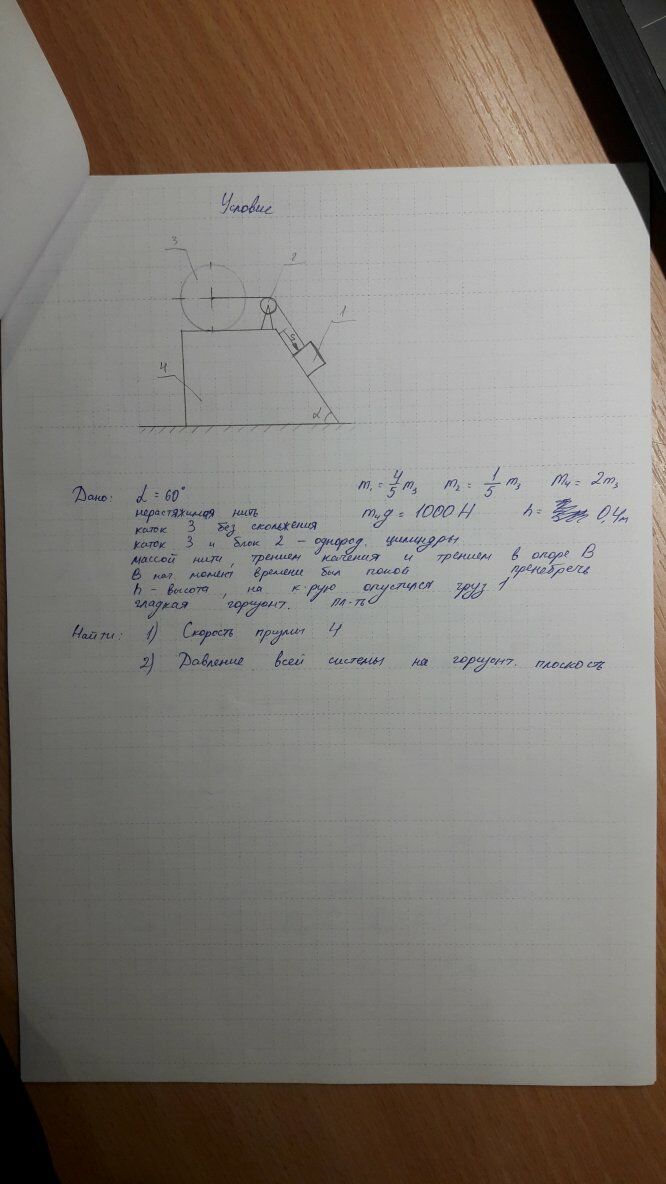 Условие
3
2
1
4
α
Дано: α = 60° m₁ = 4/5 m₃ m₂ = 1/5 m₃ m₄ = 2m₃
нерастяжимая нить m₄g = 1000 Н h = 0,4м
каток 3 без скольжения
каток 3 и блок 2 – однород. цилиндры
массой нити, трением качения и трением в опоре В пренебречь
В нач. момент времени был покой
h – высота, на к-рую опустился груз 1
гладкая горизонт. пл-ть
Найти: 1) Скорость призмы 4
2) Давление всей системы на горизонт. плоскость